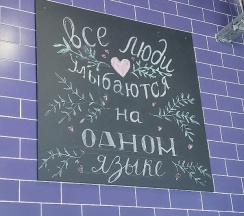 все люди
улыбаются
на
одном
языке